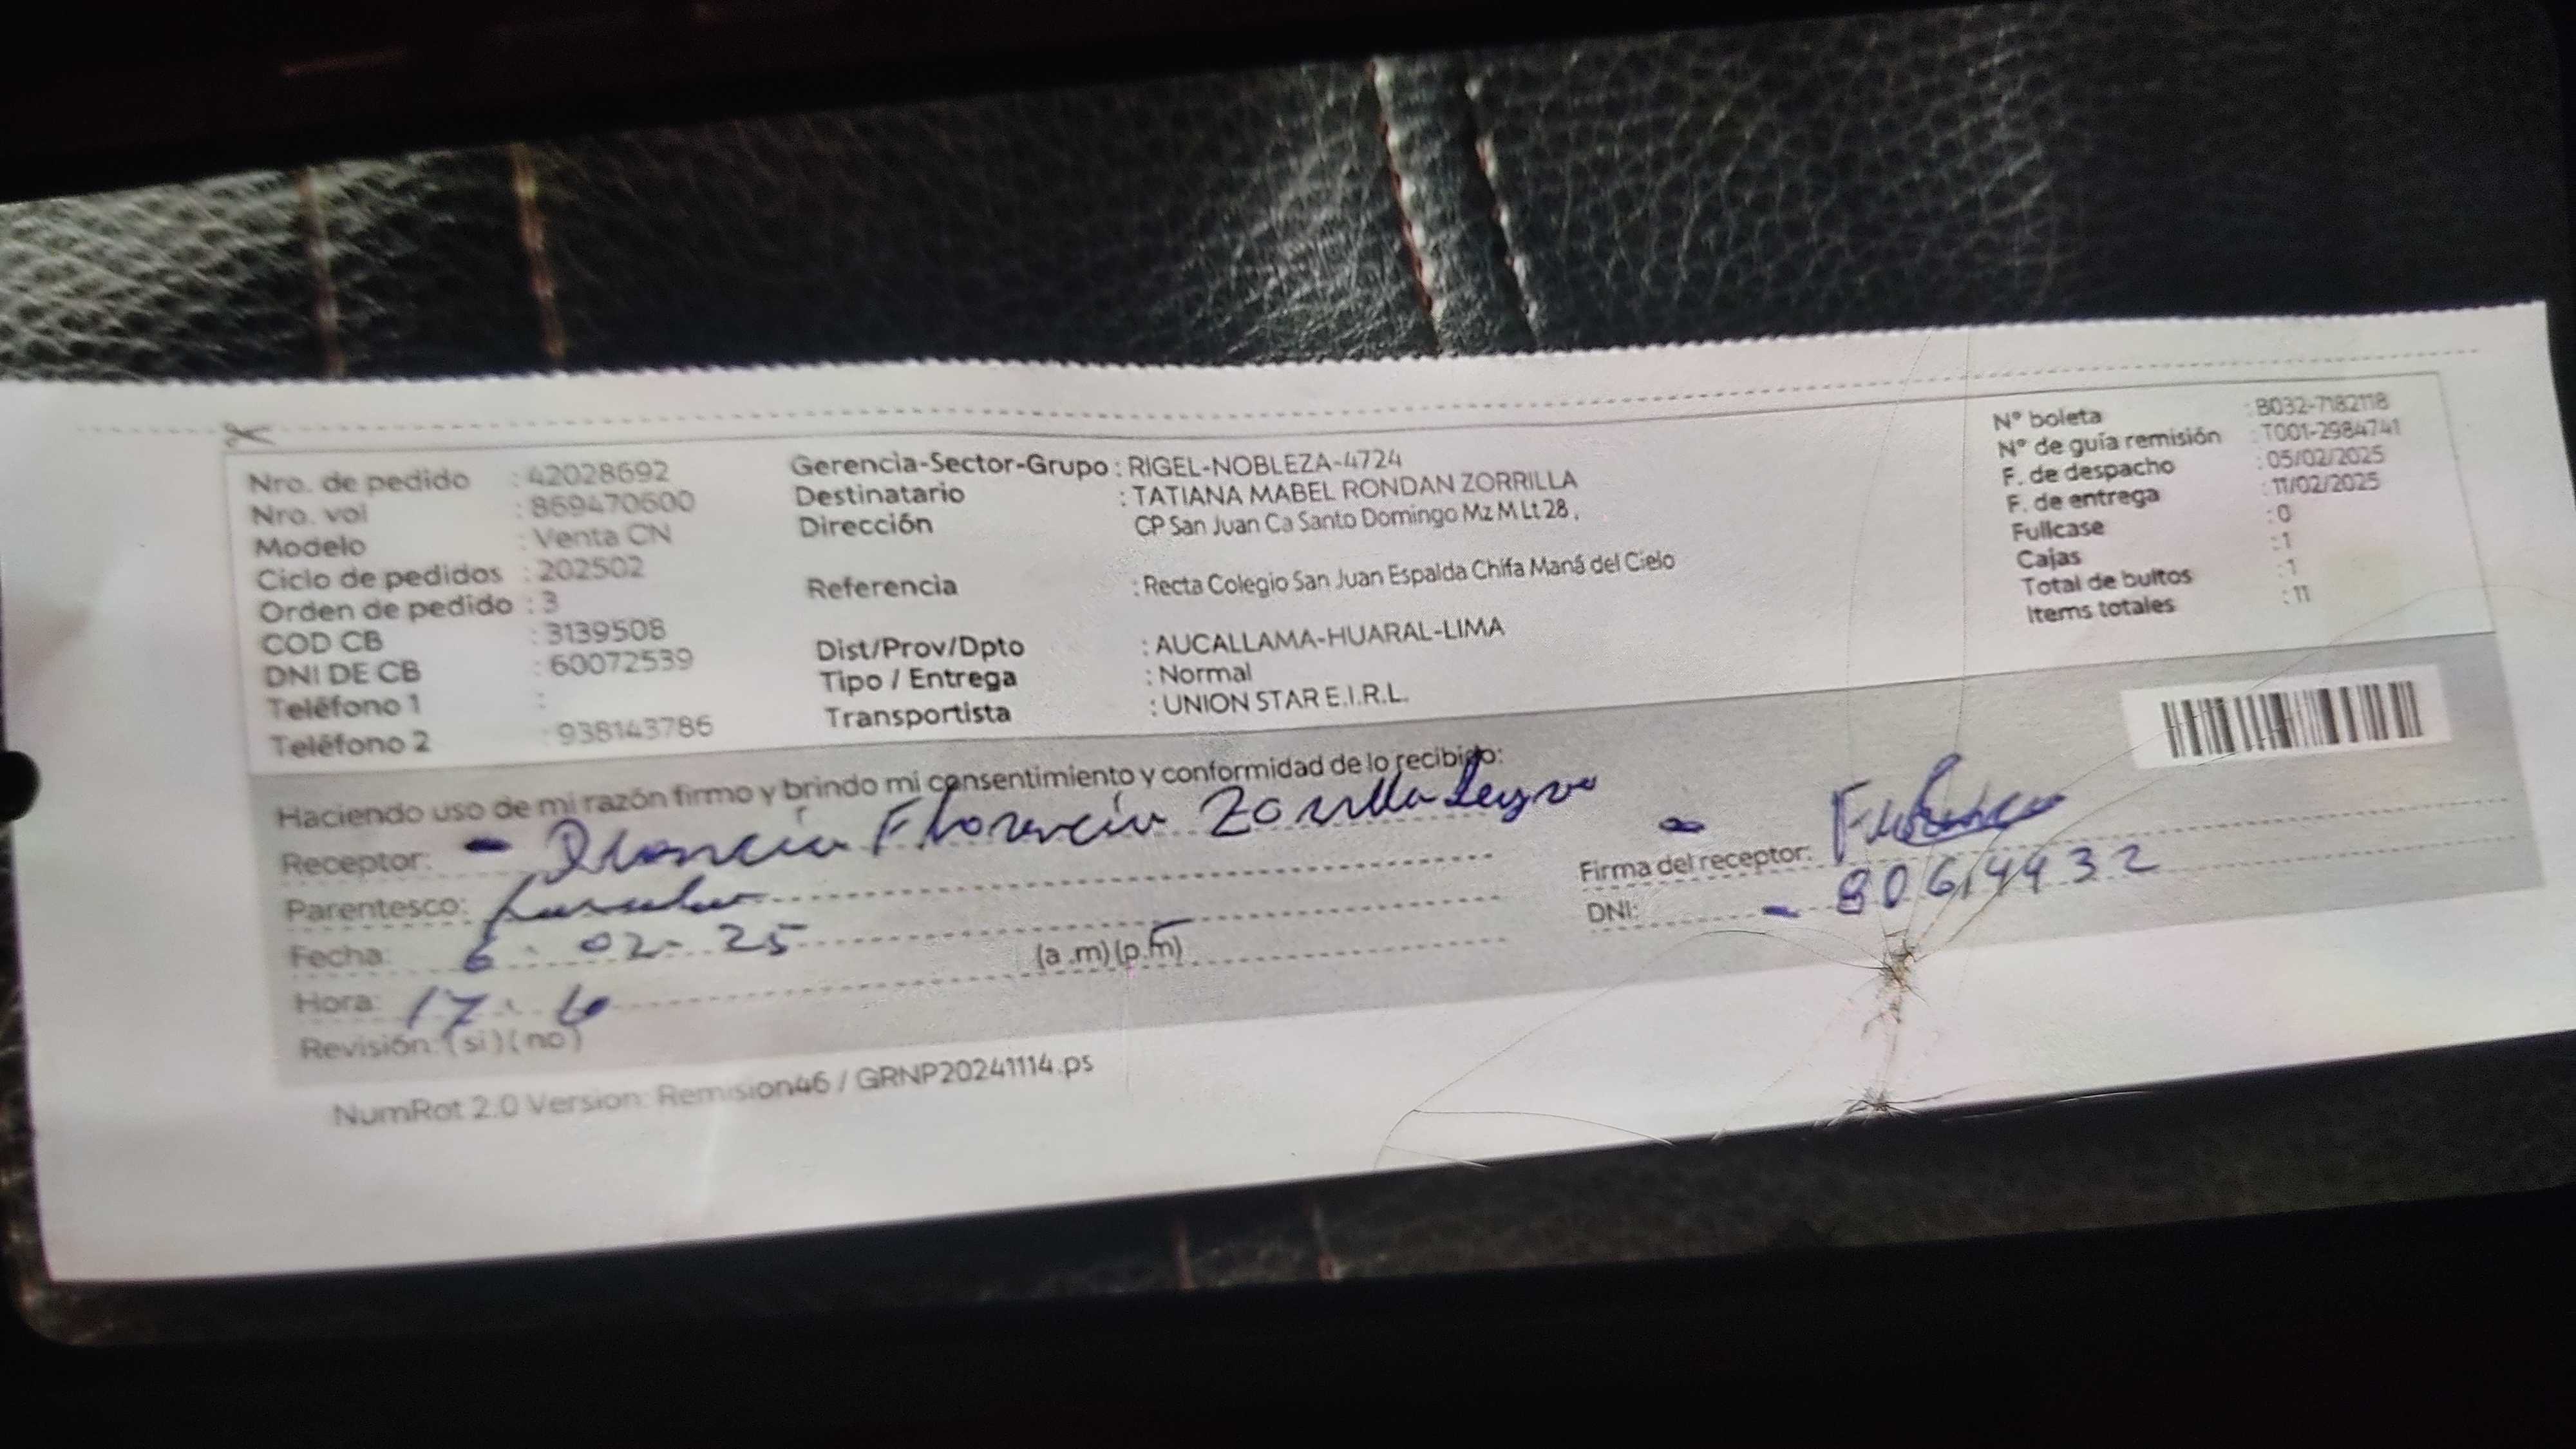 Nro. de pedido : 42028692
Nro. vol : 869470600
Modelo : Venta CN
Ciclo de pedidos : 202502
Orden de pedido : 3
COD CB : 3139508
DNI DE CB : 60072539
Teléfono 1 :
Teléfono 2 : 938143786
Gerencia-Sector-Grupo : RIGEL-NOBLEZA-4724
Destinatario : TATIANA MABEL RONDAN ZORRILLA
Dirección CP San Juan Ca Santo Domingo Mz M Lt 28 ,
Referencia : Recta Colegio San Juan Espalda Chifa Maná del Cielo
Dist/Prov/Dpto : AUCALLAMA-HUARAL-LIMA
Tipo / Entrega : Normal
Transportista : UNION STAR E.I.R.L.
N° boleta : B032-7182118
N° de guía remisión : T001-2984741
F. de despacho : 05/02/2025
F. de entrega : 11/02/2025
Fullcase : 0
Cajas : 1
Total de bultos : 1
Items totales : 11
Haciendo uso de mi razón firmo y brindo mi consentimiento y conformidad de lo recibido:
Receptor: - Florencia Zorrilla Leyva
Parentesco:
Fecha: 6 - 02 - 25
Hora: 17 (a .m) (p.m)
Revisión: ( si ) ( no )
- Firma del receptor:
DNI: - 80614432
NumRot 2.0 Version: Remision46 / GRNP20241114.ps